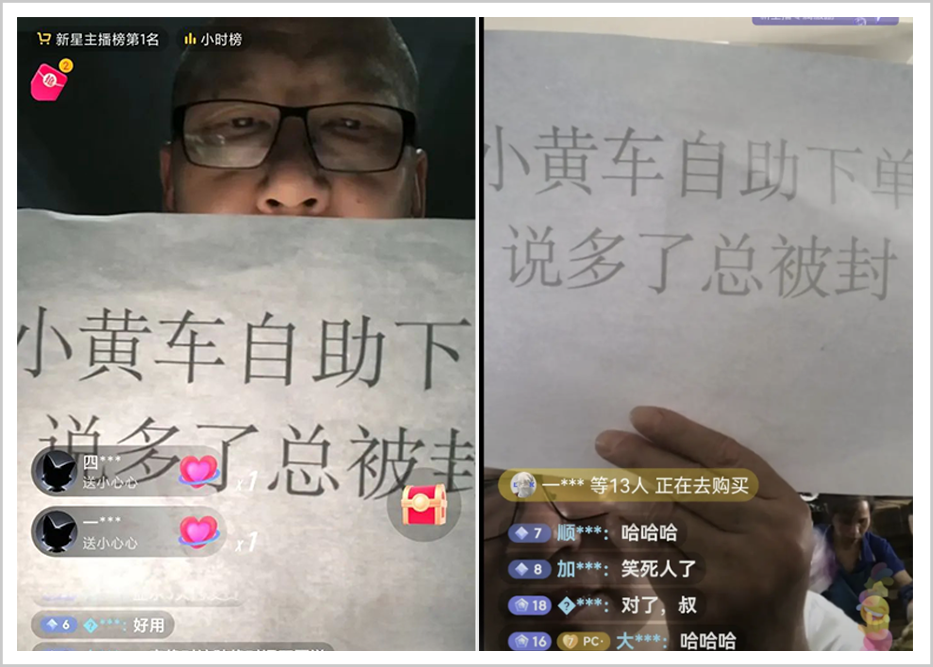 新星主播榜第1名
小时榜
抢
2
小黄车自助下
说多了总被封
四***
送小心心
x1
一***
送小心心
x1
6 ***: 好用
小黄车自助下单
说多了总被封
一*** 等13人 正在去购买
7 顺***: 哈哈哈
8 加***: 笑死人了
18 ?***: 对了，叔
16 7 PC· 大***: 哈哈哈